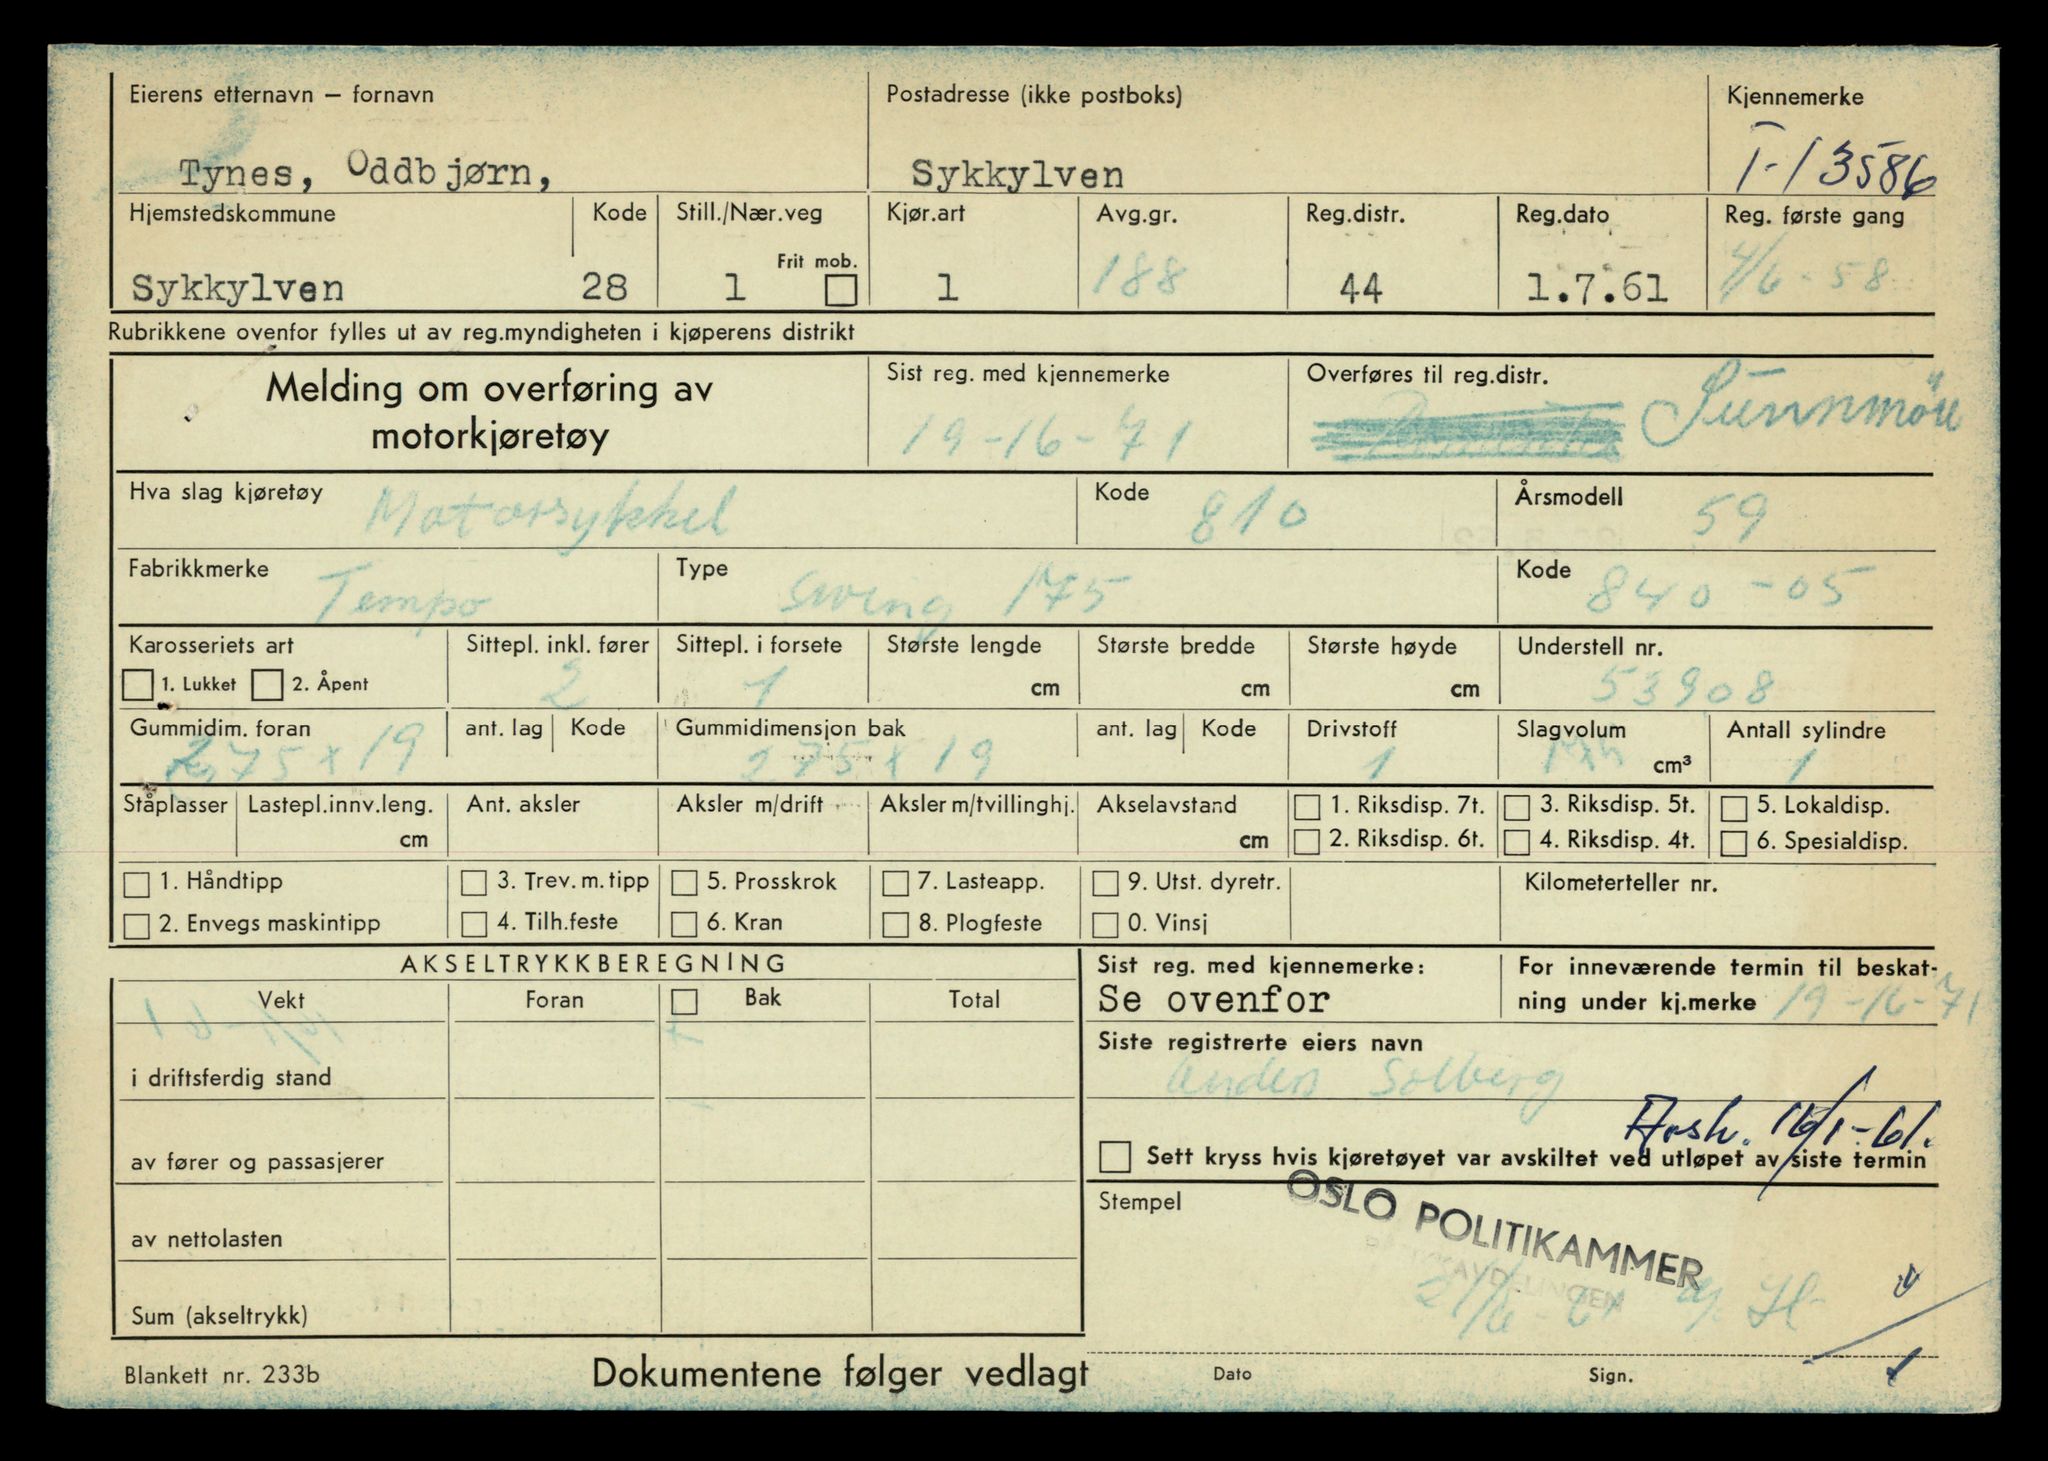 Eierens etternavn – fornavn
Postadresse (ikke postboks)
Kjennemerke
Tynes, Oddbjørn,
Sykkylven
T-13586
Hjemstedskommune
Kode
Still./Nær.veg
Kjør.art
Avg.gr.
Reg.distr.
Reg.dato
Reg. første gang
Frit mob.
Sykkylven
28
1
1
188
44
1.7.61
4/6-58
Rubrikkene ovenfor fylles ut av reg.myndigheten i kjøperens distrikt
Melding om overføring av
motorkjøretøy
Sist reg. med kjennemerke
19-16-71
Overføres til reg.distr.
Sunnmöre
Hva slag kjøretøy
Motorsykkel
Kode
810
Årsmodell
59
Fabrikkmerke
Tempo
Type
Swing 175
Kode
840-05
Karosseriets art
1. Lukket
2. Åpent
Sittepl. inkl. fører
2
Sittepl. i forsete
1
Største lengde
cm
Største bredde
cm
Største høyde
cm
Understell nr.
53908
Gummidim. foran
275 x 19
ant. lag
Kode
Gummidimensjon bak
275 x 19
ant. lag
Kode
Drivstoff
1
Slagvolum
cm³
Antall sylindre
1
Ståplasser
Lastepl.innv.leng.
cm
Ant. aksler
Aksler m/drift
Aksler m/tvillinghj.
Akselavstand
cm
1. Riksdisp. 7t.
3. Riksdisp. 5t.
5. Lokaldisp.
2. Riksdisp. 6t.
4. Riksdisp. 4t.
6. Spesialdisp.
1. Håndtipp
3. Trev. m. tipp
5. Prosskrok
7. Lasteapp.
9. Utst. dyretr.
Kilometerteller nr.
2. Envegs maskintipp
4. Tilh.feste
6. Kran
8. Plogfeste
0. Vinsj
AKSELTRYKKBEREGNING
Vekt
Foran
Bak
Total
i driftsferdig stand
av fører og passasjerer
av nettolasten
Sum (akseltrykk)
Sist reg. med kjennemerke:
Se ovenfor
For inneværende termin til beskat-
ning under kj.merke 19-16-71
Siste registrerte eiers navn
Anders Solberg
16/1-61.
Sett kryss hvis kjøretøyet var avskiltet ved utløpet av siste termin
Stempel
OSLO POLITIKAMMER
21/6-61
Blankett nr. 233b
Dokumentene følger vedlagt
Dato
Sign.